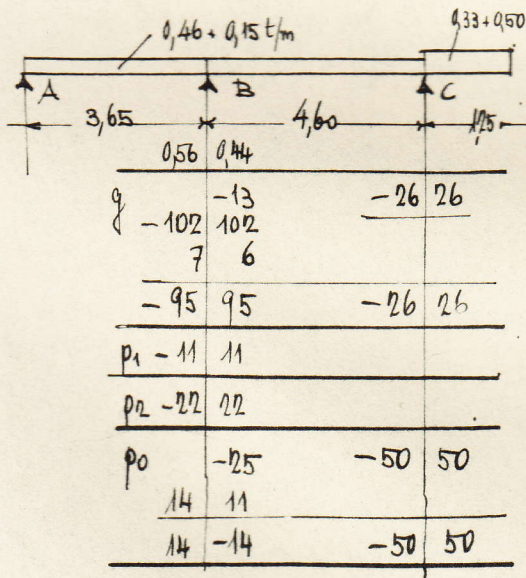 0,46 + 0,15 t/m 0,33+0,50
A B C
3,65 4,60 1,25
0,56 0,44
g -13 -26 26
-102 102
7 6
-95 95 -26 26
p1 -11 11
p2 -22 22
p0 -25 -50 50
14 11
14 -14 -50 50